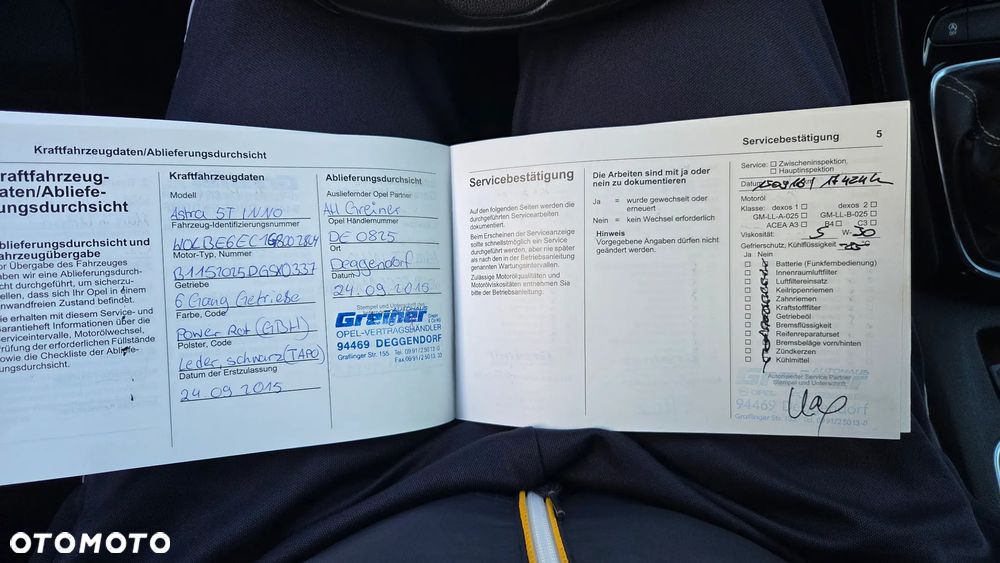 Kraftfahrzeugdaten/Ablieferungsdurchsicht
raftfahrzeug-
aten/Abliefe-
ungsdurchsicht
blieferungsdurchsicht und
ahrzeugübergabe
or Übergabe des Fahrzeuges
aben wir eine Ablieferungsdurch-
icht durchgeführt, um sicherzu-
ellen, dass sich Ihr Opel in einem
nwandfreien Zustand befindet.
ie erhalten mit diesem Service- und
arantieheft Informationen über die
erviceintervalle, Motorölwechsel,
rüfung der erforderlichen Füllstände
owie die Checkliste der Abliefe-
ungsdurchsicht.
Kraftfahrzeugdaten
Modell
Astra 5T INNO
Fahrzeug-Identifizierungsnummer
Motor-Typ, Nummer
Getriebe
6 Gang Getriebe
Farbe, Code
Power Rot (GBH)
Polster, Code
Leder, schwarz (TAPO)
Datum der Erstzulassung
24.09.2015
Ablieferungsdurchsicht
Ausliefernder Opel Partner
AH Greiner
Opel Händlernummer
DE 0825
Ort
Deggendorf
Datum
24.09.2015
Stempel und Unterschrift des
Greiner
OPEL-VERTRAGSHÄNDLER
94469 DEGGENDORF
Graflinger Str. 155 Tel. 09 91/2 50 13-0
Servicebestätigung 5
Servicebestätigung
Auf den folgenden Seiten werden die
durchgeführten Servicearbeiten
dokumentiert.
Bei Erscheinen der Serviceanzeige
sollte schnellstmöglich ein Service
durchgeführt werden, aber nie später
als nach den in der Betriebsanleitung
genannten Wartungsintervallen.
Zulässige Motorölqualitäten und
Motorölviskositäten entnehmen Sie
bitte der Betriebsanleitung.
Die Arbeiten sind mit ja oder
nein zu dokumentieren
Ja = wurde gewechselt oder
erneuert
Nein = kein Wechsel erforderlich
Hinweis
Vorgegebene Angaben dürfen nicht
geändert werden.
Service: Zwischeninspektion,
Hauptinspektion
Motoröl
Klasse: dexos 1 dexos 2
GM-LL-A-025 GM-LL-B-025
ACEA A3 B4 C3
Viskosität: 5 W-30
Gefrierschutz, Kühlflüssigkeit
Ja Nein
Batterie (Funkfernbedienung)
Innenraumluftfilter
Luftfiltereinsatz
Keilrippenriemen
Zahnriemen
Kraftstofffilter
Getriebeöl
Bremsflüssigkeit
Reifenreparaturset
Bremsbeläge vorn/hinten
Zündkerzen
Kühlmittel
Autorisierter Service Partner
Stempel und Unterschrift
AUTOHAUS
OPEL
94469 Deggendorf
Graflinger Str. 155 Tel. 09 91/2 50 13-0
OTOMOTO